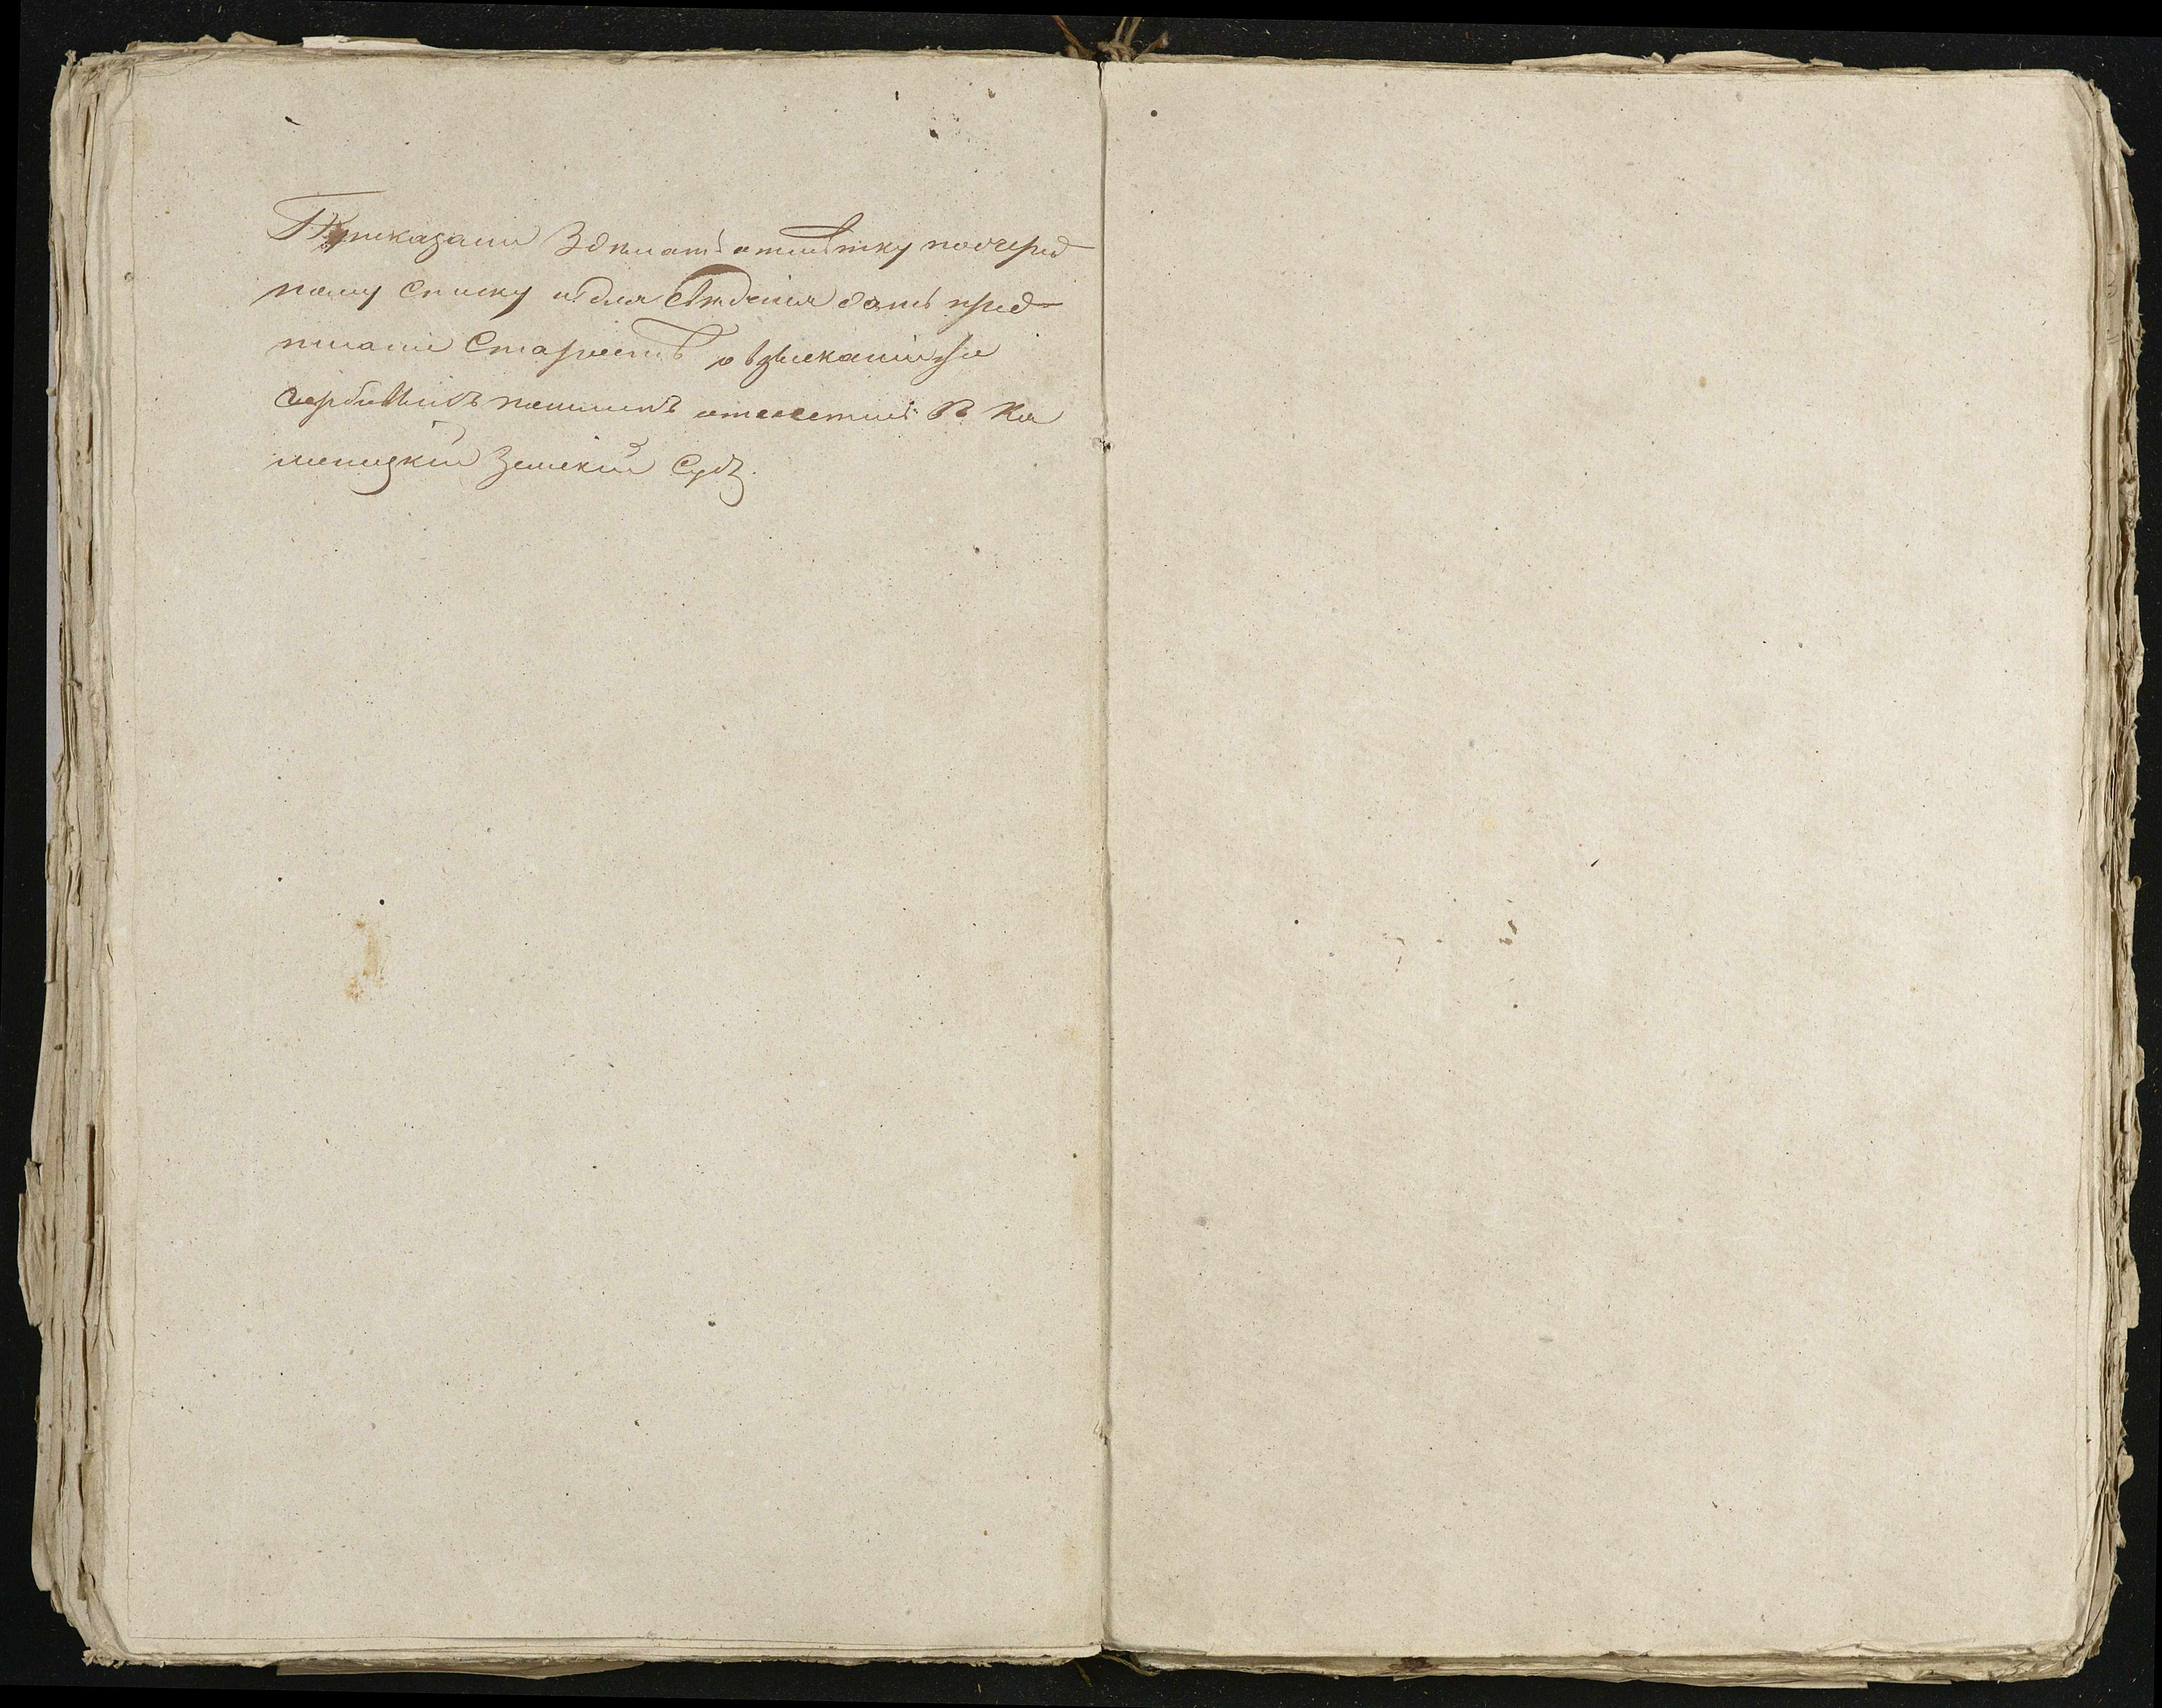 Приказали Зделать отметку поочеред
ному списку и для сведения дать пред-
писание Старосте о взыскании же
гербовых пошлин отнестись въ Ка
менецкий Земский Судъ.